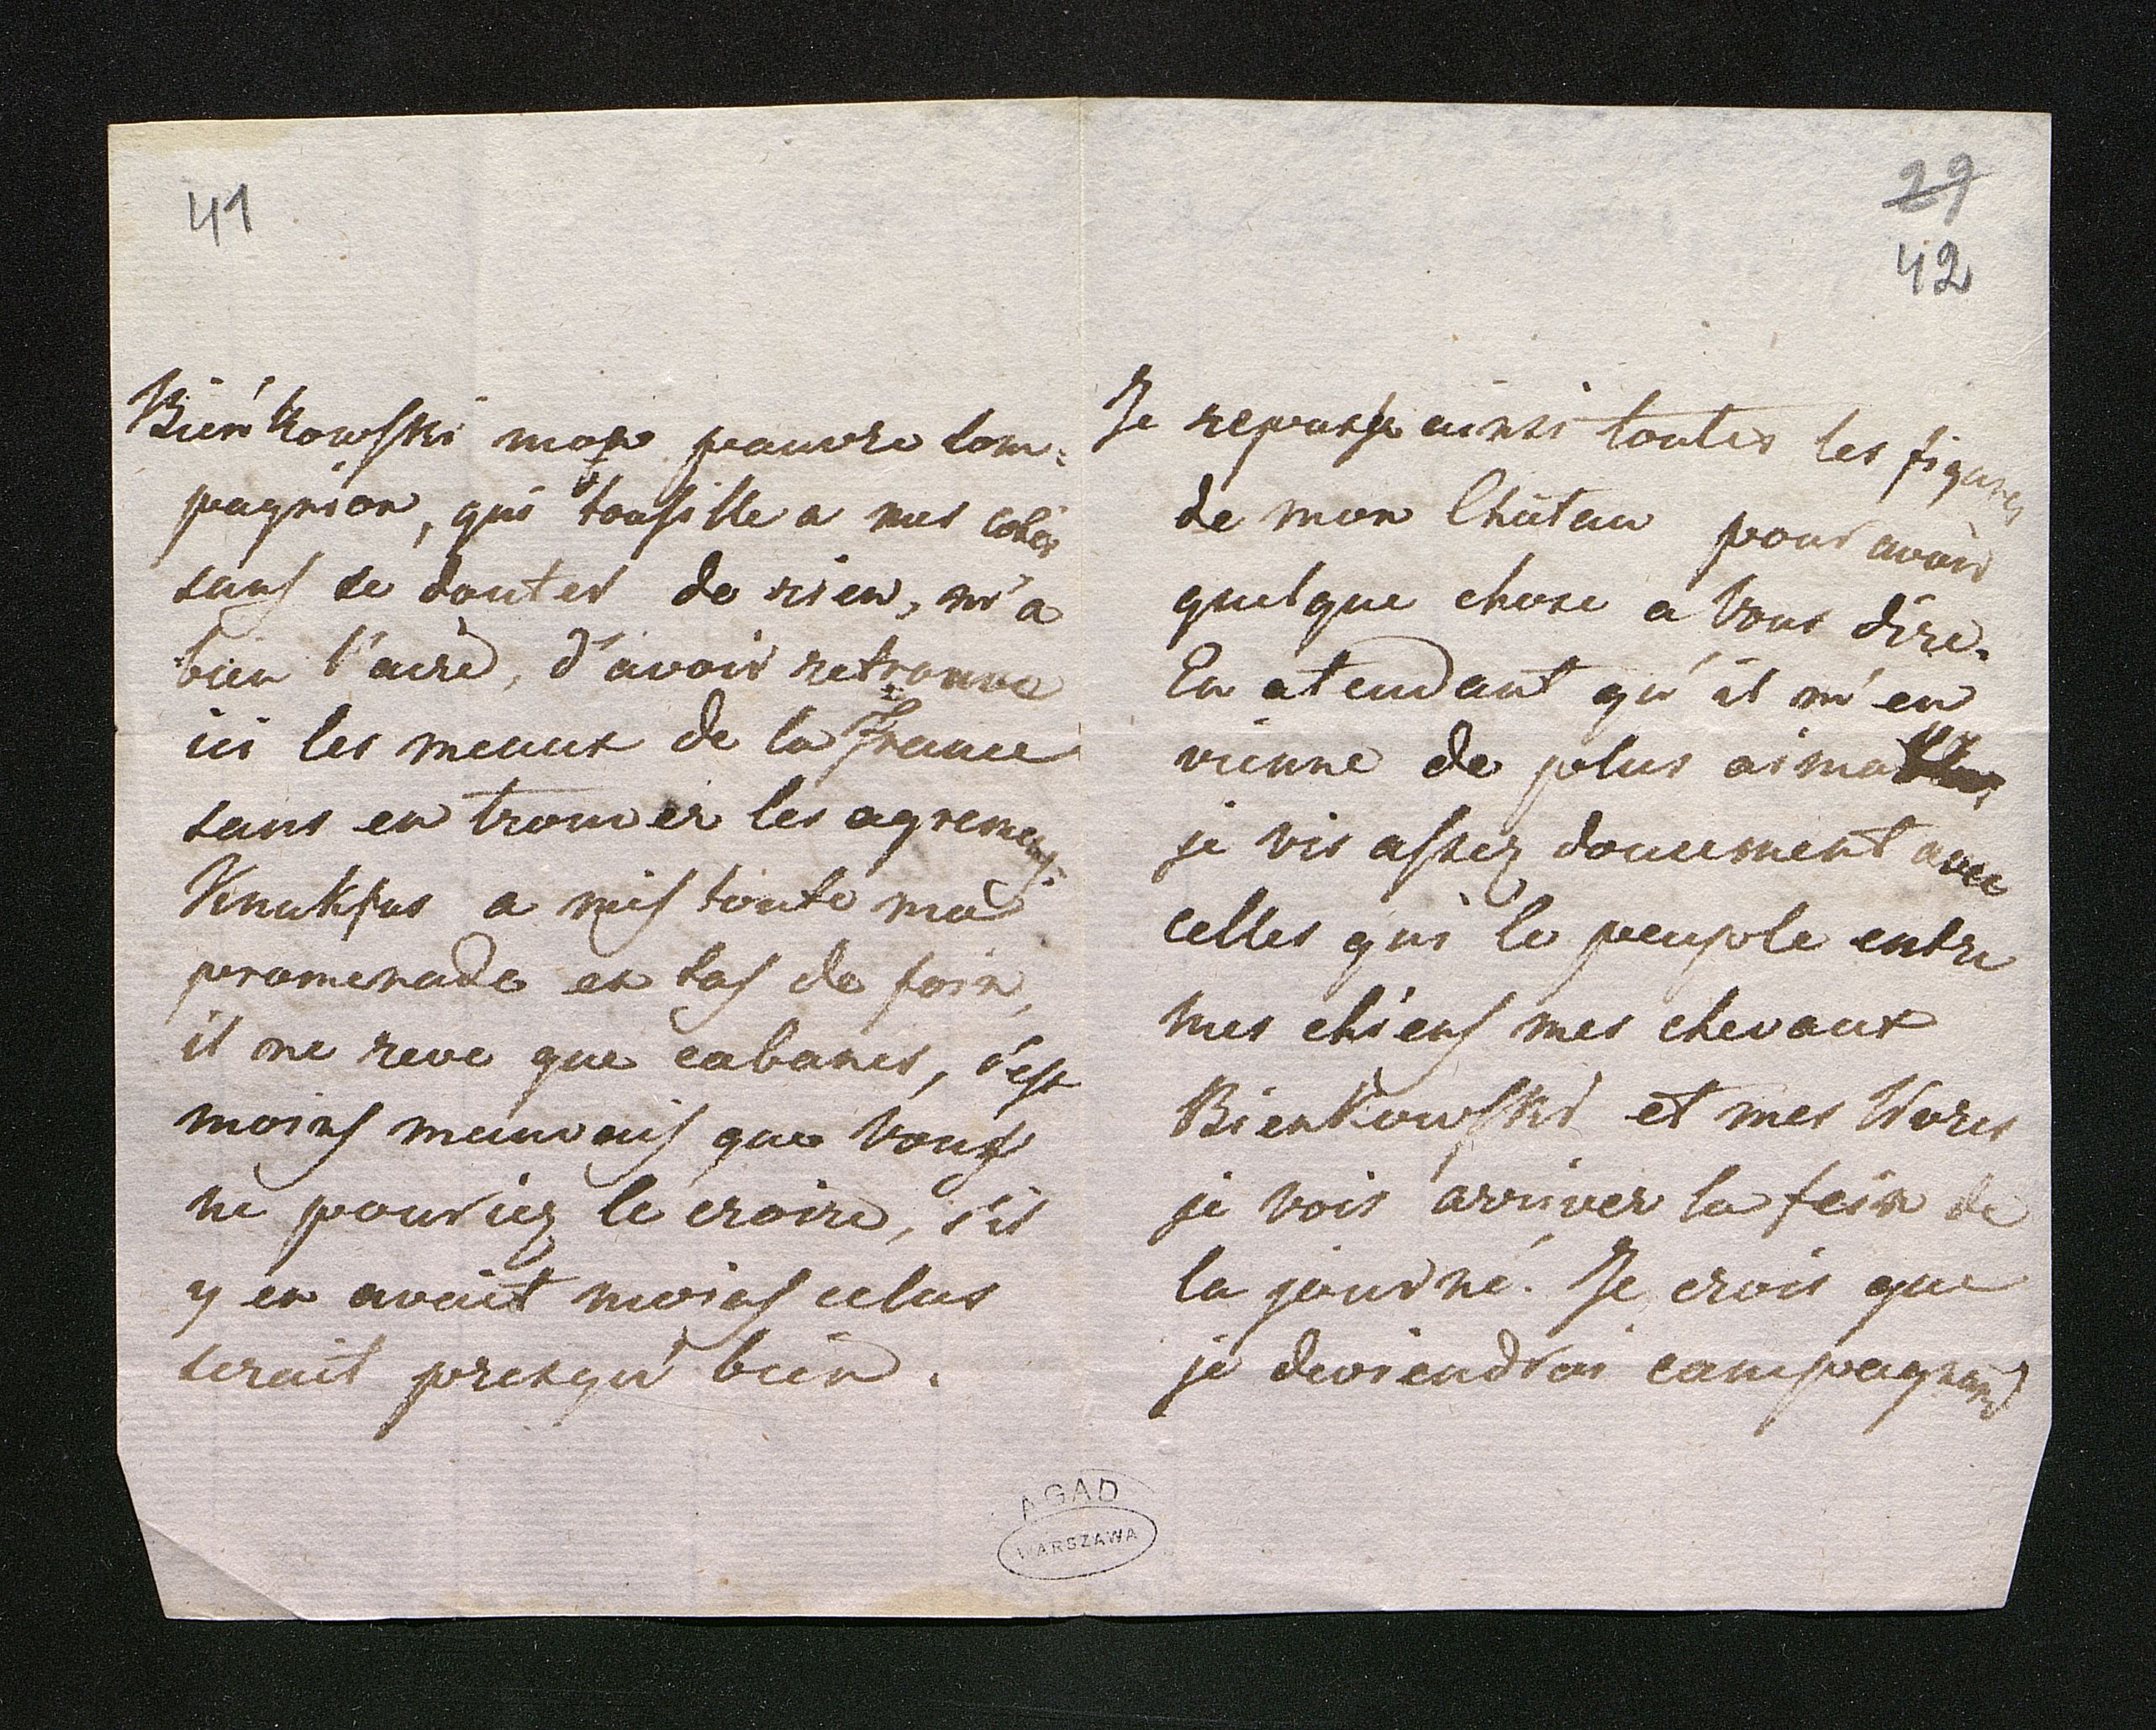 41
Bieńkowski mon pauvre com-
pagnion, qui toussille a mes cotés
sans se douter de rien, m'a
bien l'aire, d'avoir retrouve
ici les meaux de la France
sans en trouver les agremens.
Knukfus a mis toute ma
promenade en tas de foin,
il ne reve que cabanes, c'est
moins meauvais que vous
ne pouriez le croire, s'il
y en avait moins celas
serait presqu' bien.
29
42
Je repasse ainsi toutes les figures
de mon Château pour avoir
quelque chose a vous dire.
En atendant qu'il m'en
vienne de plus aimables
je vis assez doucement avec
celles qui le peuple entre
mes chiens mes chevaux
Bienkowski et mes livres
je vois arriver la fein de
la journé. Je crois que
je deviendrai campagnard
AGAD
WARSZAWA